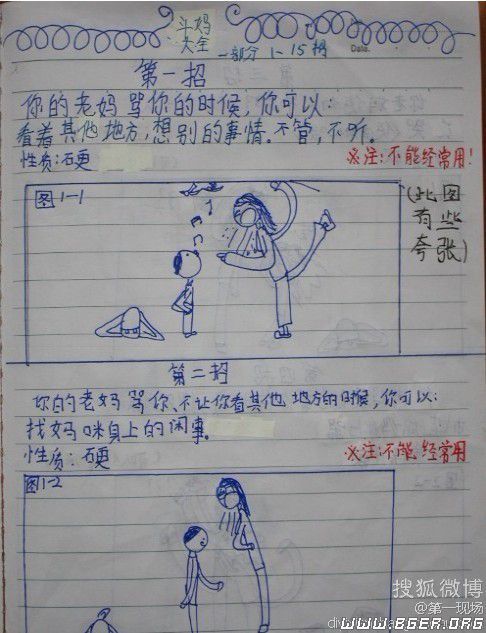 斗妈
大全
一部分 1~15招
Date.
第一招
你的老妈骂你的时候,你可以:
看着其他地方,想别的事情。不管,不听。
性质:强硬
※注:不能经常用!
图1-1
(此图
有些
夸张)
第二招
你的老妈骂你、不让你看其他地方的时候,你可以:
找妈咪身上的闲事。
性质:强硬
※注:不能经常用
图1-2
搜狐微博
@第一现场
WWW.BGER.ORG